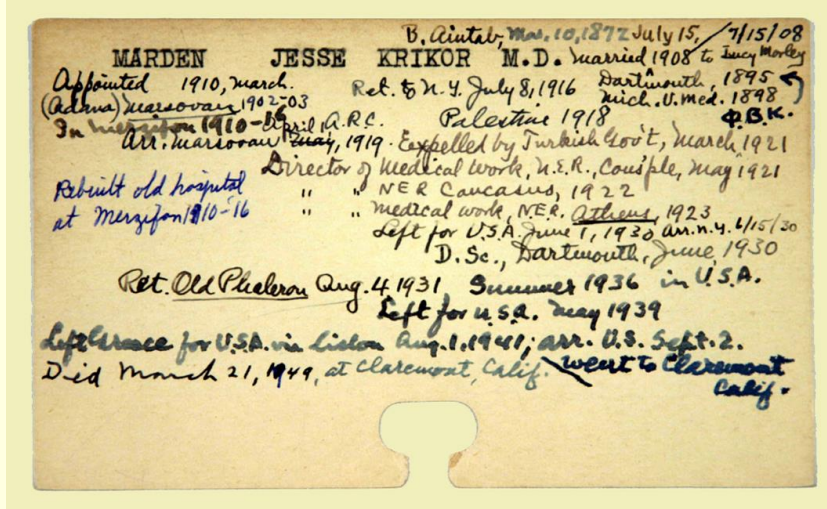 B. Aintab, Mar. 10, 1872 July 15, 7/15/08
MARDEN JESSE KRIKOR M.D. married 1908 to Lucy Morley
Appointed 1910, March. Ret. to N.Y. July 8, 1916 Dartmouth, 1895
(Adana) Marsovan 1902-03 Mich. U. Med. 1898
In Merzifon 1910-16 April 1, A.R.C. Palestine 1918 Φ.B.K.
Arr. Marsovan May, 1919. Expelled by Turkish Gov't, March 1921
Director of Medical Work, N.E.R., Cons'ple, May 1921
Rebuilt old hospital " " NER Caucasus, 1922
at Merzifon 1910-16 " " medical work, N.E.R. Athens, 1923
Left for U.S.A. June 1, 1930 arr. N.Y. 6/15/30
D. Sc., Dartmouth, June, 1930
Ret. Old Phaleron Aug. 4 1931 Summer 1936 in U.S.A.
Left for U.S.A. May 1939
Left Greece for U.S.A. via Lisbon Aug. 1, 1941; arr. U.S. Sept. 2.
Died March 21, 1949, at Claremont, Calif. went to Claremont
Calif.